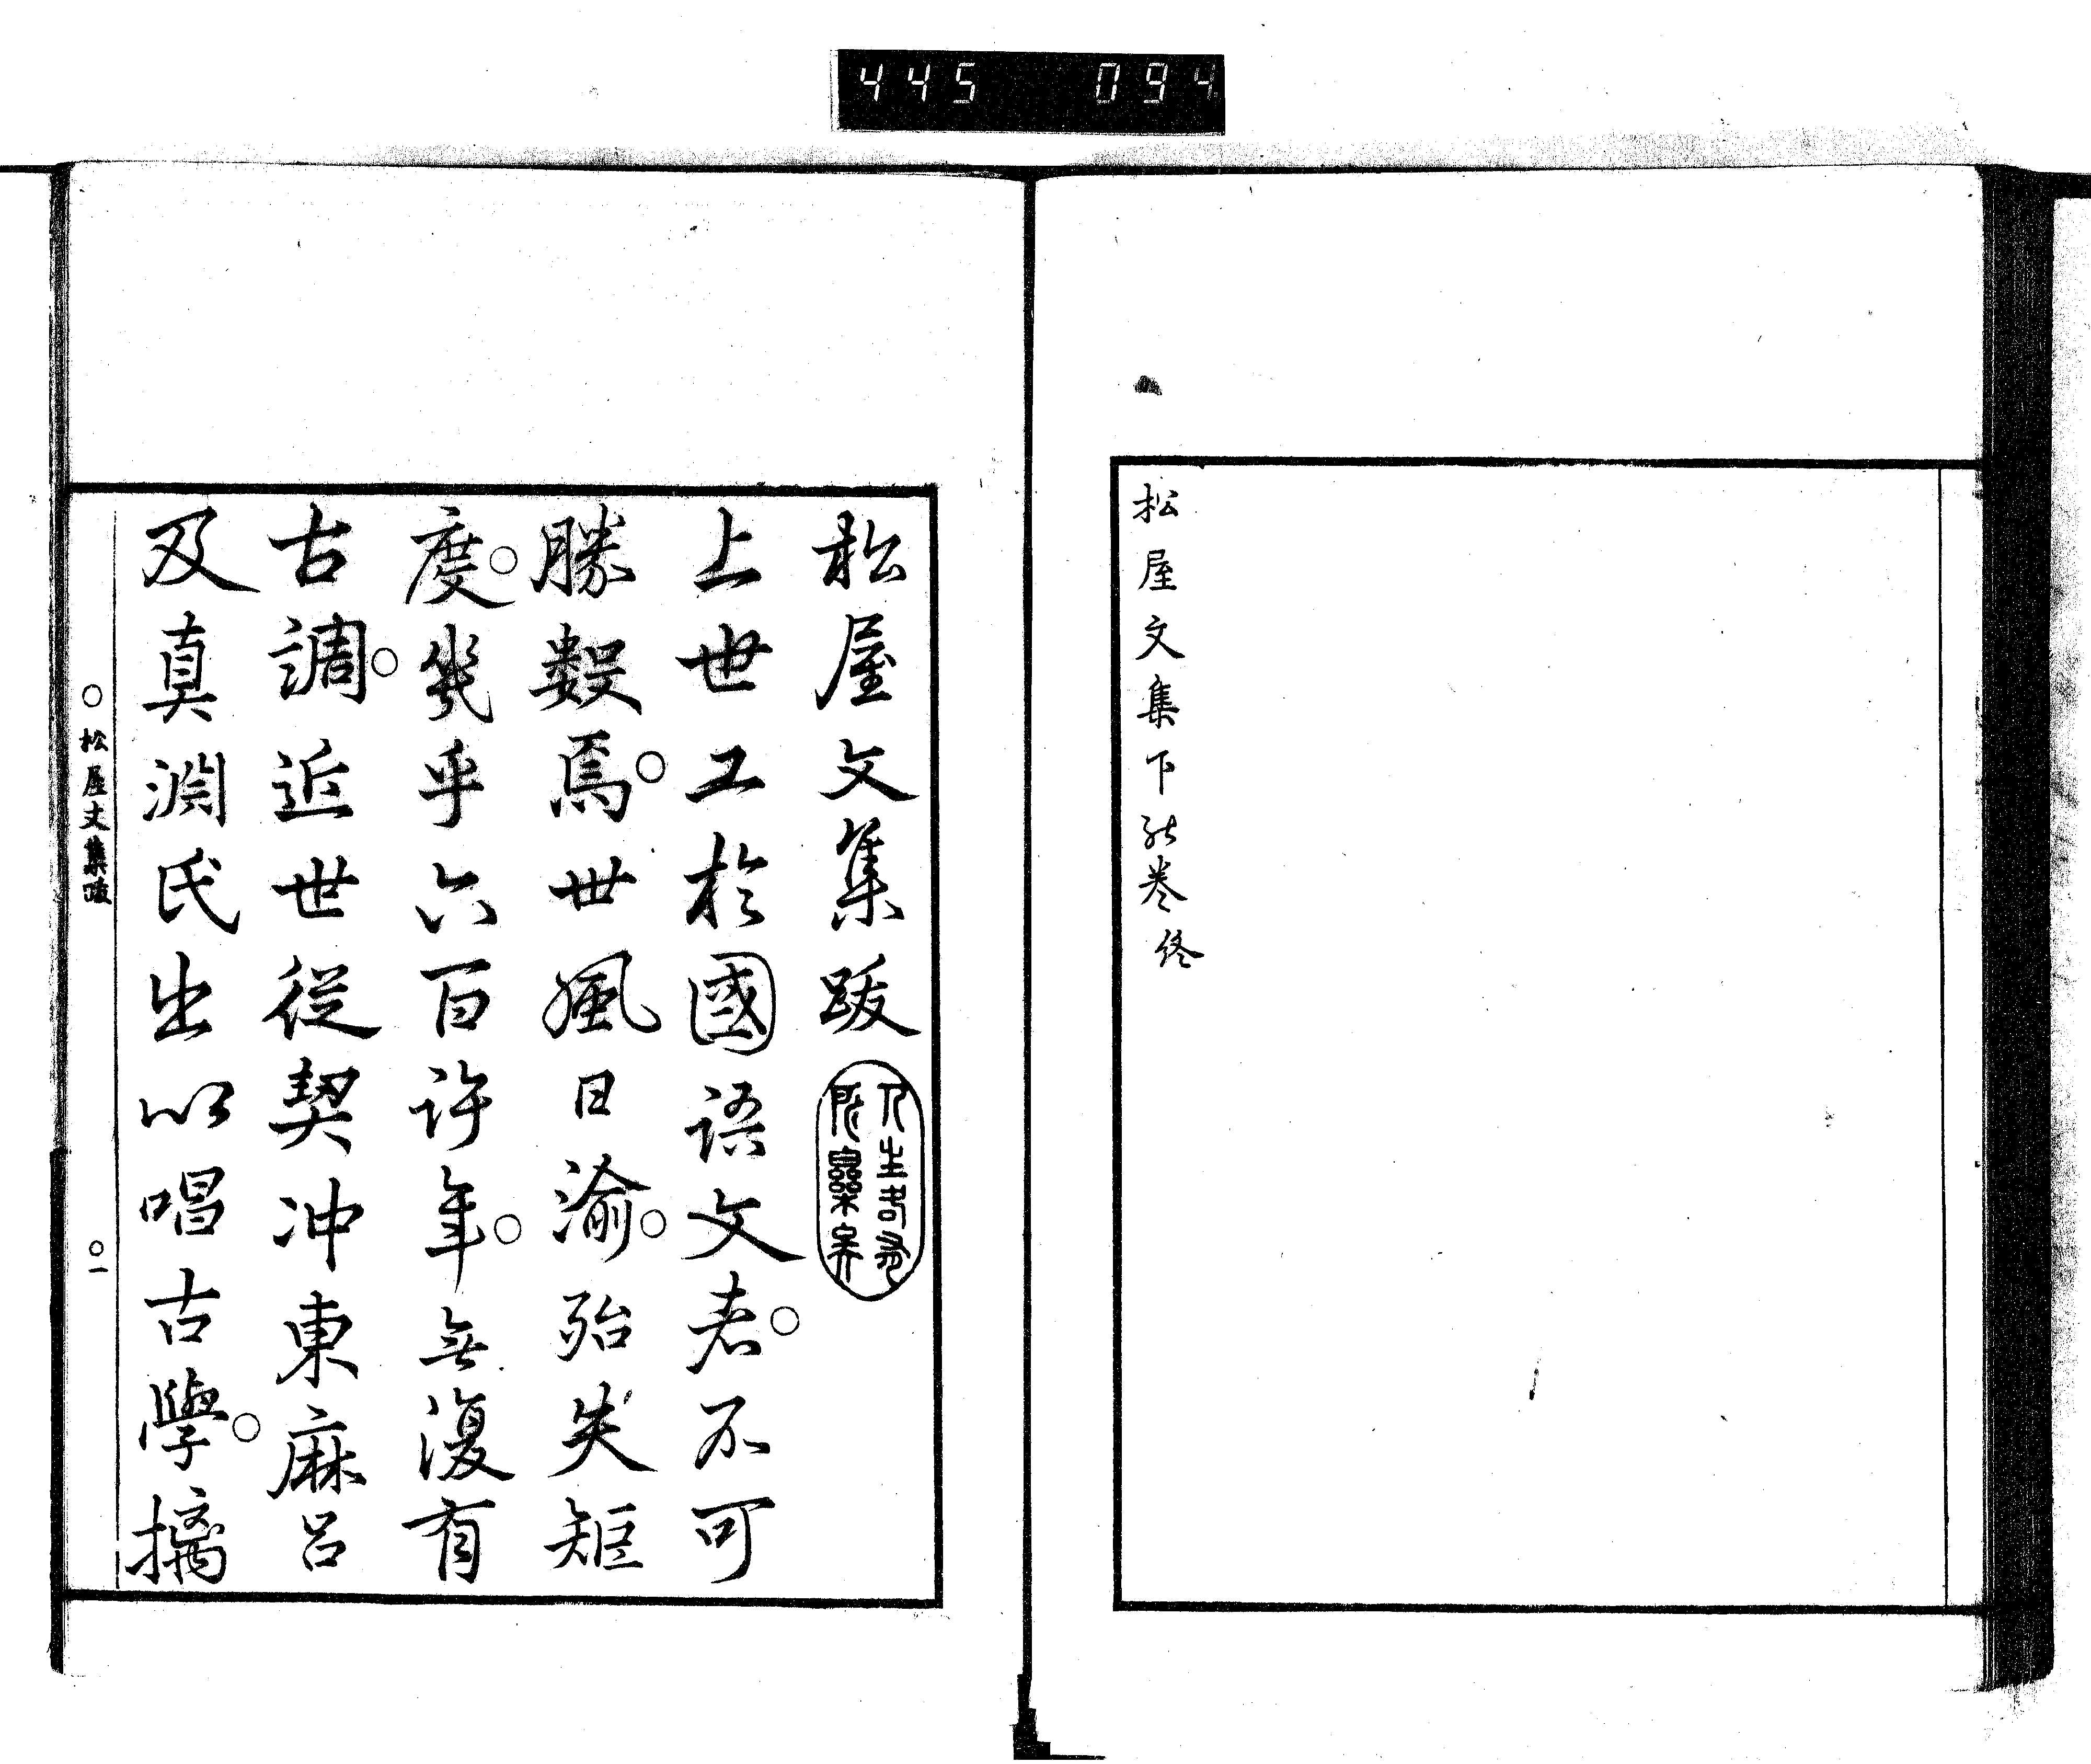 445 094
松屋文集下能巻終
松屋文集跋
上世工於國語文者○不可
勝数焉○世風日渝○殆失矩
度○幾乎六百許年○無復有
古調○近世從契冲東麻呂
及真淵氏出以唱古學○摛
○松屋文集跋 ○一